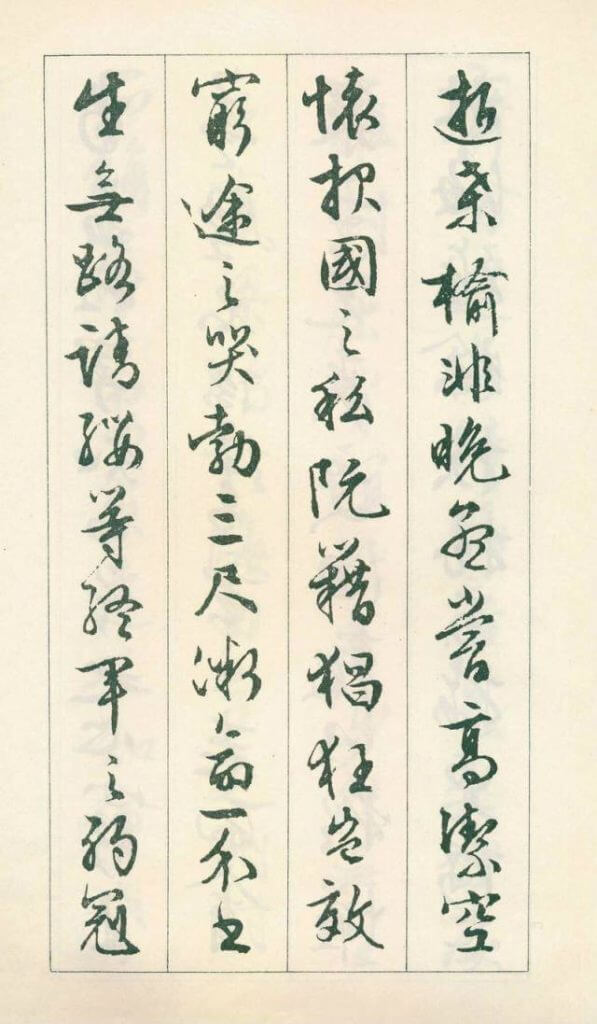 逝桑榆非晚孟嘗高潔空
懷報國之私阮籍猖狂豈效
窮途之哭勃三尺微命一介書
生無路請纓等終軍之弱冠